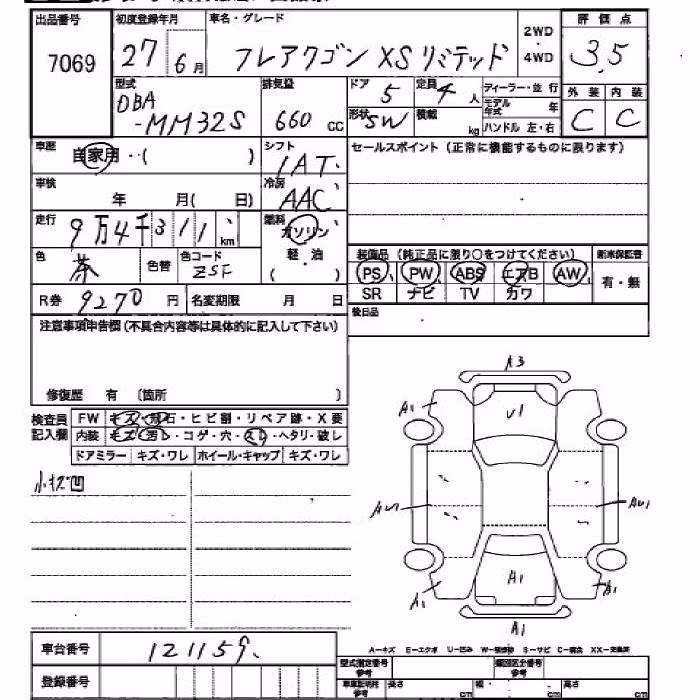 出品番号 初度登録年月 車名・グレード 2WD・4WD 評価点
7069 27 6月 フレアワゴン XS リミテッド 3.5
型式 排気量 ドア 定員 ディーラー・並行 外装 内装
DBA-MM32S 660 cc 5 4人 モデル年式 年 C C
形状 SW 積載 kg ハンドル 左・右
車歴 自家用・( ) シフト IAT セールスポイント (正常に機能するものに限ります)
車検 年 月( 日) 冷房 AAC
走行 9万4千311 km 燃料 ガソリン
色 茶 色替 色コード ZSF 軽・油 ( )
装備品 (純正品に限り○をつけてください) 新車保証書
PS PW ABS エアB AW 有・無
SR ナビ TV カワ
R券 9270 円 名変期限 月 日 後日品
注意事項申告欄(不具合内容等は具体的に記入して下さい)
修復歴 有 (箇所 )
検査員記入欄 FW キズ・飛石・ヒビ割・リペア跡・X要
内装 キズ・汚レ・コゲ・穴・スレ・ヘタリ・破レ
ドアミラー キズ・ワレ ホイール・キャップ キズ・ワレ
小キズ凹
A3
A1 U1
A1
A1 A1
A1
車台番号 121159
A-キズ E-エクボ U-凹み W-補修跡 S-サビ C-腐食 XX-交換済
登録番号 型式指定番号 参考 類別区分番号 参考
車庫証明用 参考 長さ cm 幅 cm 高さ cm